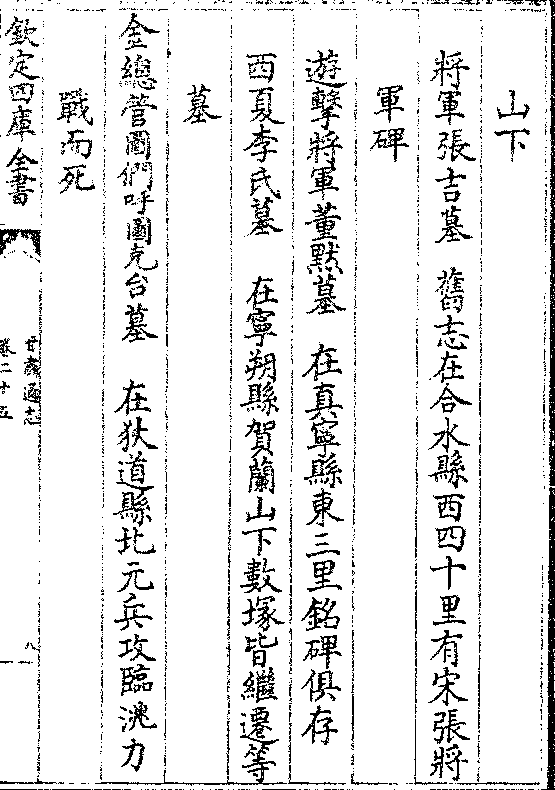 山下
將軍張吉墓 舊志在合水縣西四十里有宋張將
軍碑
遊擊將軍董黙墓 在真寧縣東三里銘碑俱存
西夏李氏墓 在寧朔縣賀蘭山下數塚皆繼遷等
墓
金總管圖們呼圖克台墓 在狄道縣北元兵攻臨洮力
戰而死
欽定四庫全書
甘肅通志
卷二十五
八